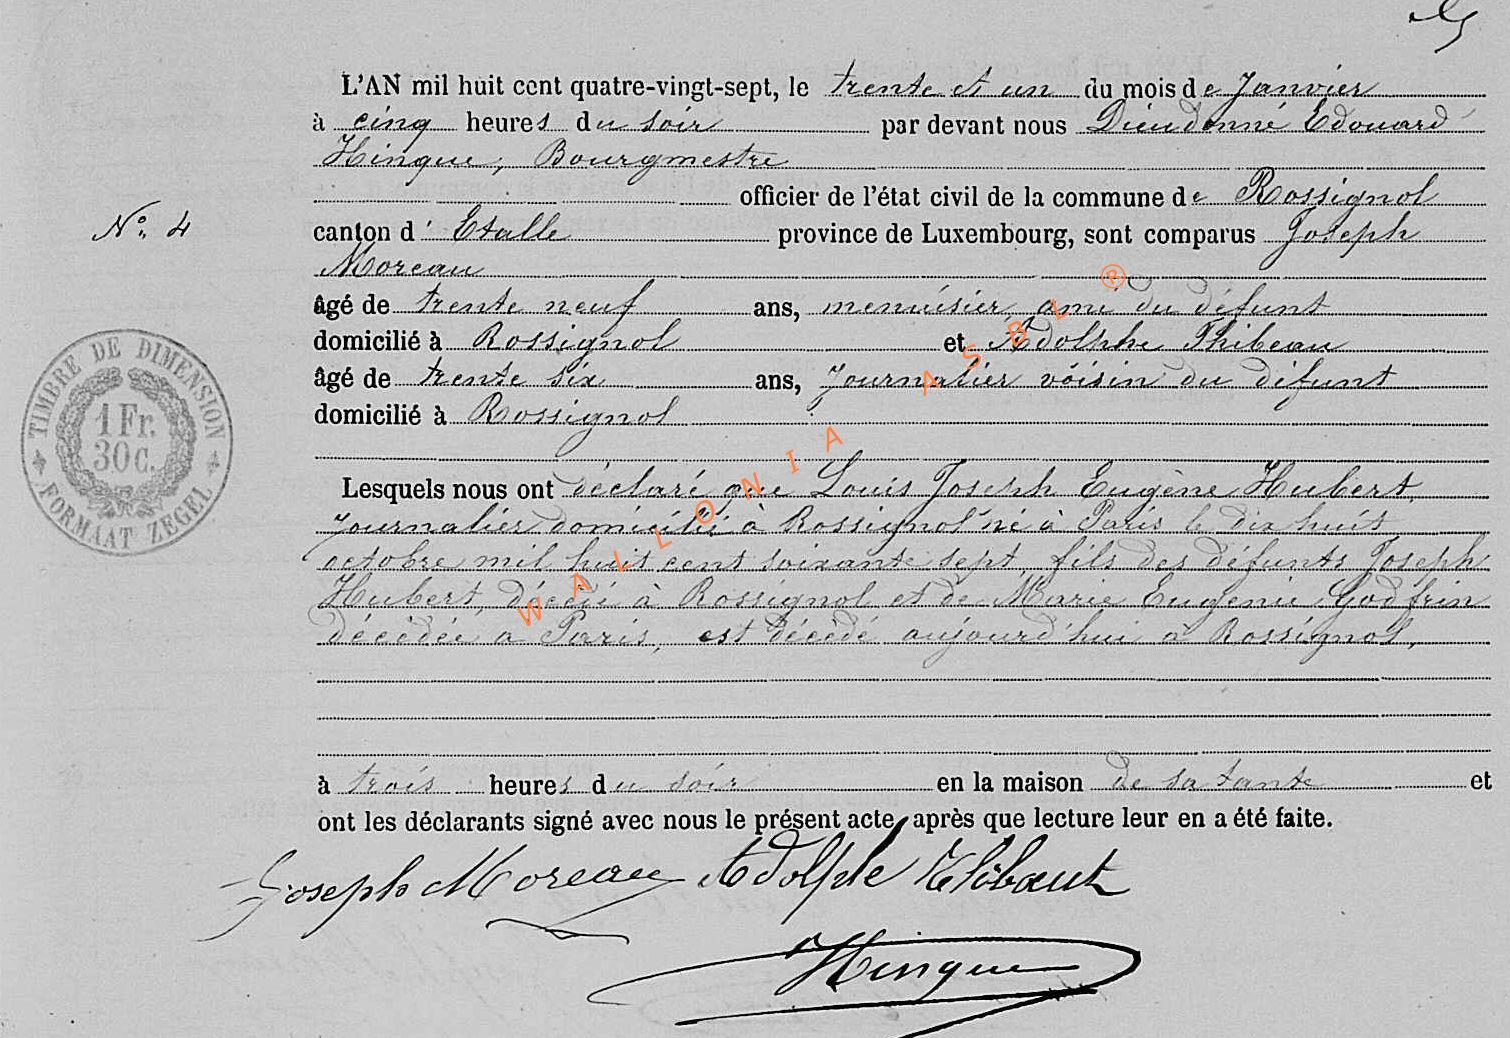 L'AN mil huit cent quatre-vingt-sept, le trente et un du mois de Janvier
à cinq heures du soir par devant nous Dieudonné Edouard
Hinque, Bourgmestre
officier de l'état civil de la commune de Rossignol
N° 4
canton d' Etalle province de Luxembourg, sont comparus Joseph
Moreau
âgé de trente neuf ans, menuisier, ami du défunt
domicilié à Rossignol et Adolphe Thibeau
âgé de trente six ans, journalier voisin du défunt
domicilié à Rossignol
TIMBRE DE DIMENSION
1 Fr.
30 c.
FORMAAT ZEGEL
Lesquels nous ont déclaré que Louis Joseph Eugène Hubert,
journalier domicilié à Rossignol né à Paris le dix huit
octobre mil huit cent soixante sept, fils des défunts Joseph
Hubert, décédé à Rossignol et de Marie Eugénie Godfrin
décédée a Paris, est décédé aujourd'hui à Rossignol,
à trois heures du soir en la maison de sa tante et
ont les déclarants signé avec nous le présent acte, après que lecture leur en a été faite.
Joseph Moreau Adolphe Thibaut
Hinque
WALLONIA ASBL ®